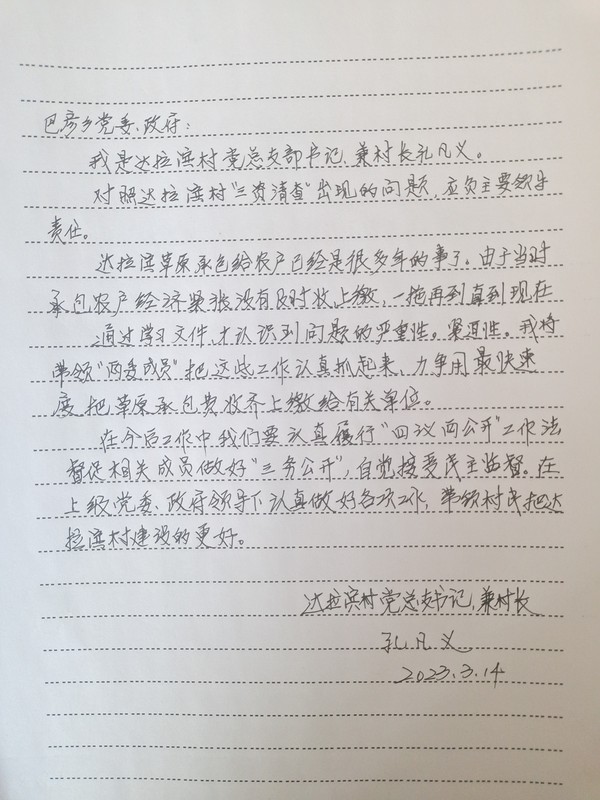 巴彦乡党委、政府:
我是达拉滨村党总支部书记、兼村长孔凡义。
对照达拉滨村"三资清查"出现的问题,应负主要领导
责任。
达拉滨草原承包给农户已经是很多年的事了。由于当时
承包农户经济紧张没有及时收上缴,一拖再到直到现在
通过学习文件,才认识到问题的严重性。紧迫性。我将
带领"两委成员"把这些工作认真抓起来,力争用最快速
度,把草原承包费收齐上缴给有关单位。
在今后工作中我们要认真履行"四议两公开"工作法
督促相关成员做好"三务公开",自觉接受民主监督。在
上级党委、政府领导下认真做好各项工作,带领村民把达
拉滨村建设的更好。
达拉滨村党总支书记、兼村长
孔凡义
2023.3.14